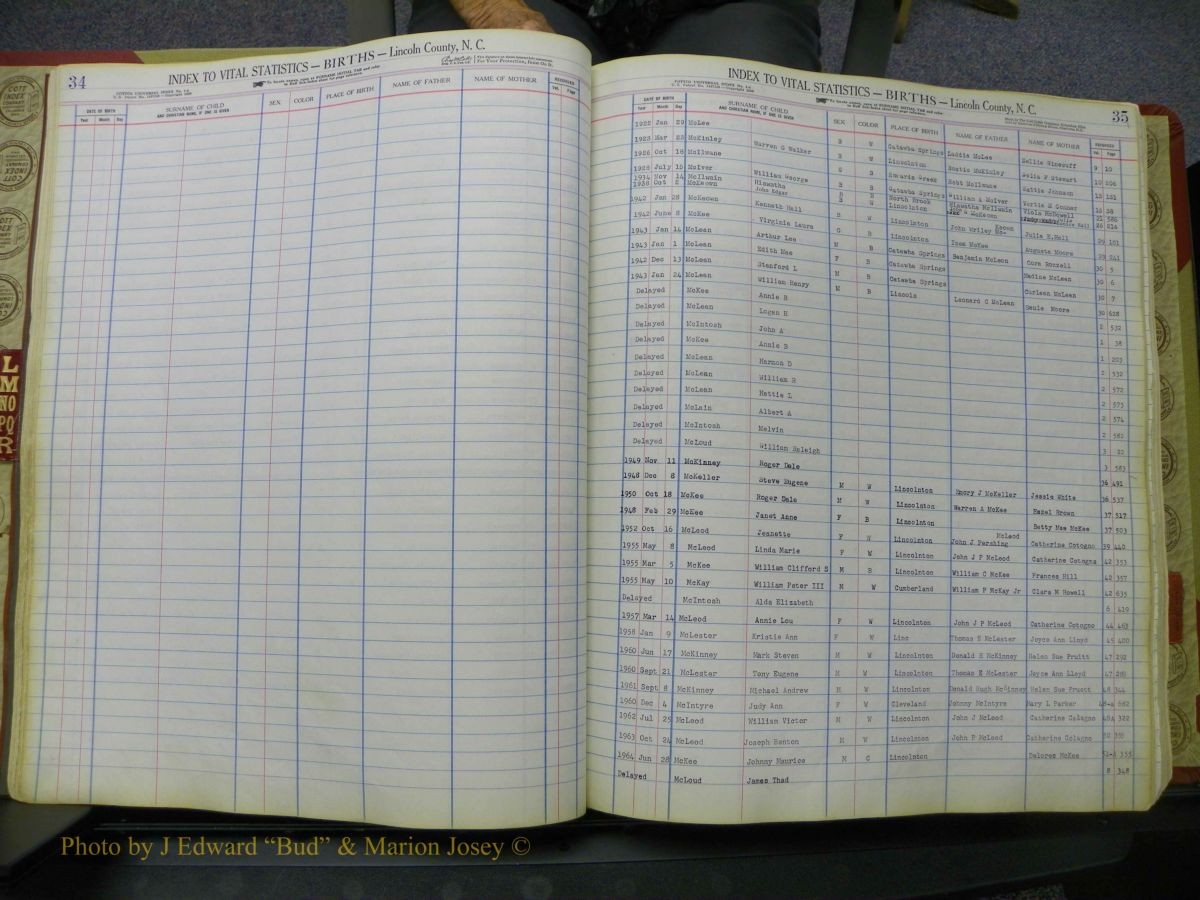 34
INDEX TO VITAL STATISTICS — BIRTHS — Lincoln County, N. C.
DATE OF BIRTH
Year Month Day
SURNAME OF CHILD
AND CHRISTIAN NAME, IF ONE IS GIVEN
SEX
COLOR
PLACE OF BIRTH
NAME OF FATHER
NAME OF MOTHER
RECORDED
Vol. Page
INDEX TO VITAL STATISTICS — BIRTHS — Lincoln County, N. C.
35
DATE OF BIRTH
Year Month Day
SURNAME OF CHILD
AND CHRISTIAN NAME, IF ONE IS GIVEN
SEX
COLOR
PLACE OF BIRTH
NAME OF FATHER
NAME OF MOTHER
RECORDED
Vol. Page
Jan 29 McLee B W Catawba Springs Laddie McLee 9 10
Mar McKinley Warren G Walker B W Lincolnton McKinley Delia F Stewart 10 206
1926 Oct 18 McIlwane Howards Creek Robt McIlwane Mattie Johnson
1928 July McIver William George B B Catawba Springs William A McIver Vertie E Conner
1934 Nov 14 McIlwain Hiawatha North Brook Hiawatha McIlwain Viola McDowell
1938 Oct McKeown John Edgar B W Lincolnton McKeown 26 214
1942 Jan 28 McKeown Kenneth Hall B W Lincolnton John Wriley Julia E Hall 29 101
1942 June 8 McKee Virginia Laura G B Lincolnton McKee Augusta Moore 29 241
1943 Jan 14 McLean Arthur Lee M B Catawba Springs Benjamin McLean Cora Bonzell 30 5
1943 Jan 1 McLean Edith Mae F B Catawba Springs McLean 30 6
1942 Dec 13 McLean Stanford L M B Catawba Springs McLean 30 7
1943 Jan 24 McLean William Henry M B Lincoln Leonard C McLean Moore 30 628
Delayed McKee Annie B 2 532
Delayed McLean Logan H 1 38
Delayed McIntosh John A 1 203
Delayed McKee Annie B 2 532
Delayed McLean Harmon D 2 572
Delayed McLean William R 2 573
Delayed McLean Hettie L 2 574
Delayed McLain Albert A 2 582
Delayed McIntosh Melvin 3 20
Delayed McLoud William Raleigh 3 583
1949 Nov 11 McKinney Roger Dale 36 491
1948 Dec 8 McKeller Steve Eugene M W Lincolnton Emory J McKeller Jessie White 36 537
1950 Oct 18 McKee Roger Dale M W Lincolnton Warren A McKee Hazel Brown 37 517
1948 Feb 29 McKee Janet Anne F B Lincolnton Betty Mae McKee 37 503
1952 Oct 16 McLeod Jeanette F W Lincolnton John J Pershing McLeod Catherine Cotogno 39 440
1955 May 8 McLeod Linda Marie F W Lincolnton John J P McLeod Catherine Cotogno 42 353
1955 Mar 5 McKee William Clifford S M B Lincolnton William C McKee Frances Hill 42 357
1955 May 10 McKay William Peter III M W Cumberland William P McKay Jr Clara M Howell 42 635
Delayed McIntosh Alda Elizabeth 6 419
1957 Mar 14 McLeod Annie Lou F W Lincolnton John J P McLeod Catherine Cotogno 44 463
1958 Jan 9 McLester Kristie Ann F W Linc Thomas E McLester Joyce Ann Lloyd 45 400
1960 Jun 17 McKinney Mark Steven M W Lincolnton Donald H McKinney Helen Sue Pruitt 47 292
1960 Sept 21 McLester Tony Eugene M W Lincolnton Thomas E McLester Joyce Ann Lloyd 47
1961 Sept 8 McKinney Michael Andrew M W Lincolnton Donald Hugh McKinney Helen Sue Pruett 48 344
1960 Dec 4 McIntyre Judy Ann F W Cleveland Johnny McIntyre Mary L Parker 48-a 682
1962 Jul 25 McLeod William Victor M W Lincolnton John J McLeod Catherine Colagno 49A 322
1963 Oct 24 McLeod Joseph Benton M W Lincolnton John P McLeod Catherine Colagno
1964 Jun 28 McKee Johnny Maurice M C Lincolnton Delores McKee 355
Delayed McLoud James Thad 8 348
COTT
INDEX
COMPANY
L
M
NO
PQ
R
Photo by J Edward “Bud” & Marion Josey ©